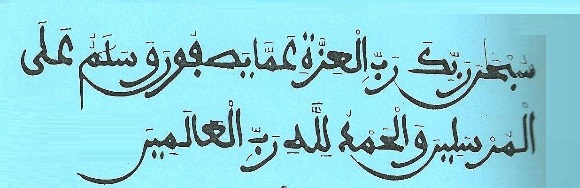 سُبْحَٰنَ رَبِّكَ رَبِّ الْعِزَّةِ عَمَّا يَصِفُونَ وَسَلَٰمٌ عَلَى
الْمُرْسَلِينَ وَالْحَمْدُ لِلَّهِ رَبِّ الْعَالَمِينَ